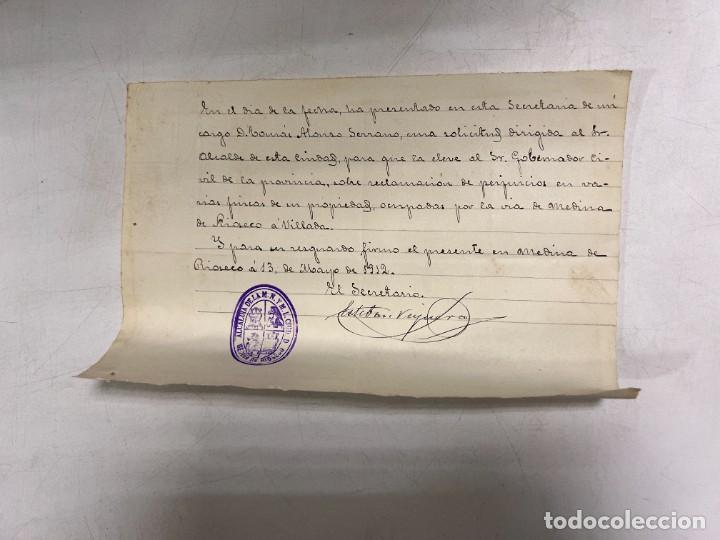 En el dia de la fecha, ha presentado en esta Secretaria de mi
cargo D. Tomás Alonso Serrano, una solicitud dirigida al Sr.
Alcalde de esta Ciudad, para que la eleve al Sr. Gobernador Ci-
vil de la provincia, sobre reclamación de perjuicios en va-
rias fincas de su propiedad, ocupadas por la via de Medina
de Rioseco á Villada.
Y para su resguardo firmo el presente en Medina de
Rioseco á 13, de Mayo de 1912.
El Secretario,
Esteban
ALCALDIA DE LA M. N. Y M. L. CIUD. D.
todocoleccion
todocoleccion.net